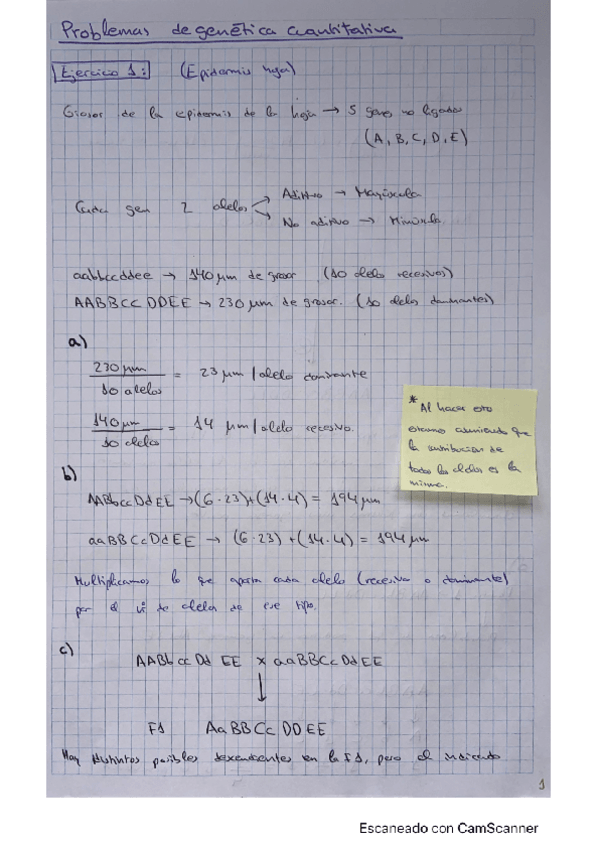 Problemas de genética cuantitativa
Ejercicio 1: (Epidermis hoja)
Grosor de la epidermis de la hoja → 5 genes no ligados
(A, B, C, D, E)
Cada gen 2 alelos → Aditivo → Mayúscula
→ No aditivo → Minúscula
aabbccddee → 140 μm de grosor (10 alelos recesivos)
AABBCCDDEE → 230 μm de grosor. (10 alelos dominantes)
a)
230 μm / 10 alelos = 23 μm / alelo dominante
140 μm / 10 alelos = 14 μm / alelo recesivo.
* Al hacer esto
estamos asumiendo que
la contribución de
todos los alelos es la
misma.
b)
AABbccDdEE → (6·23)+(14·4) = 194 μm
aaBBCcDdEE → (6·23)+(14·4) = 194 μm
Multiplicamos lo que aporta cada alelo (recesivo o dominante)
por el nº de alelos de ese tipo.
c)
AABbccDdEE x aaBBCcDdEE
↓
F1 AaBBCcDDEE
Hay distintos posibles descendientes en la F1, pero el indicado
1
Escaneado con CamScanner